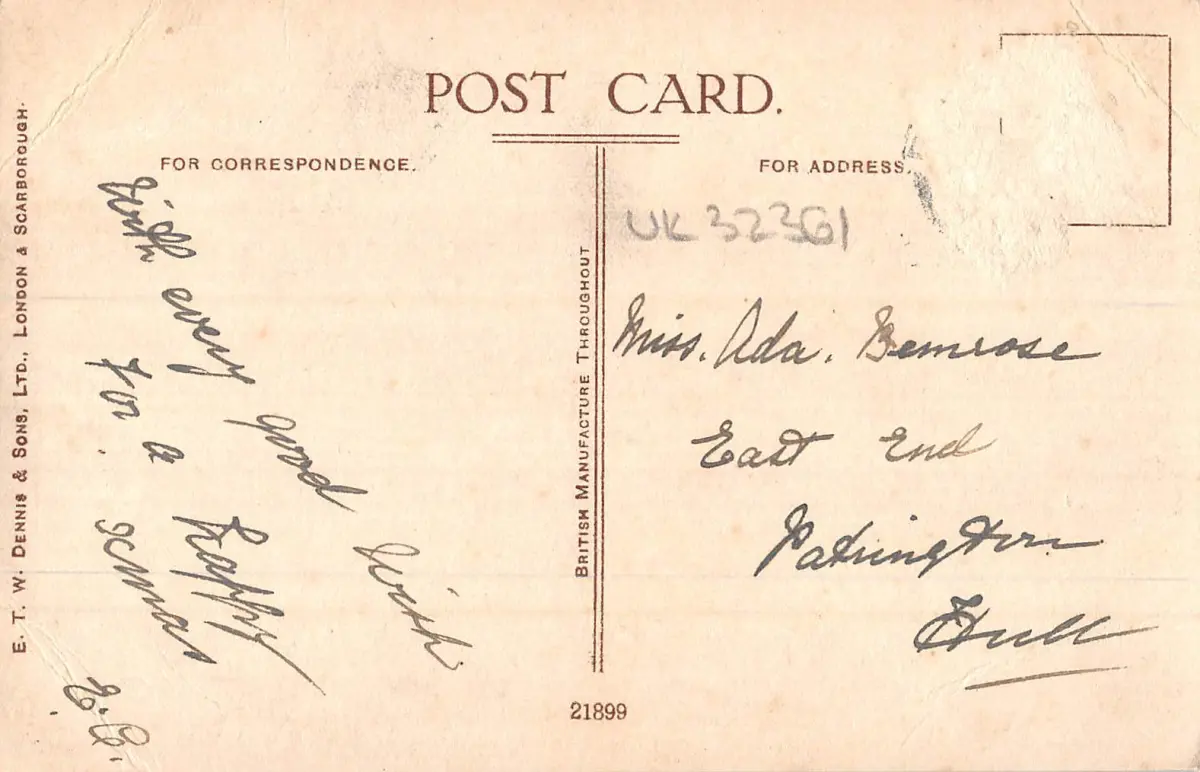 POST CARD.
FOR CORRESPONDENCE.
FOR ADDRESS.
E. T. W. DENNIS & SONS, LTD., LONDON & SCARBOROUGH.
BRITISH MANUFACTURE THROUGHOUT
UK 32361
With every good wish
For a happy
xmas
E.C.
Miss. Ada. Bemrose
East End
Patrington
Hull
21899